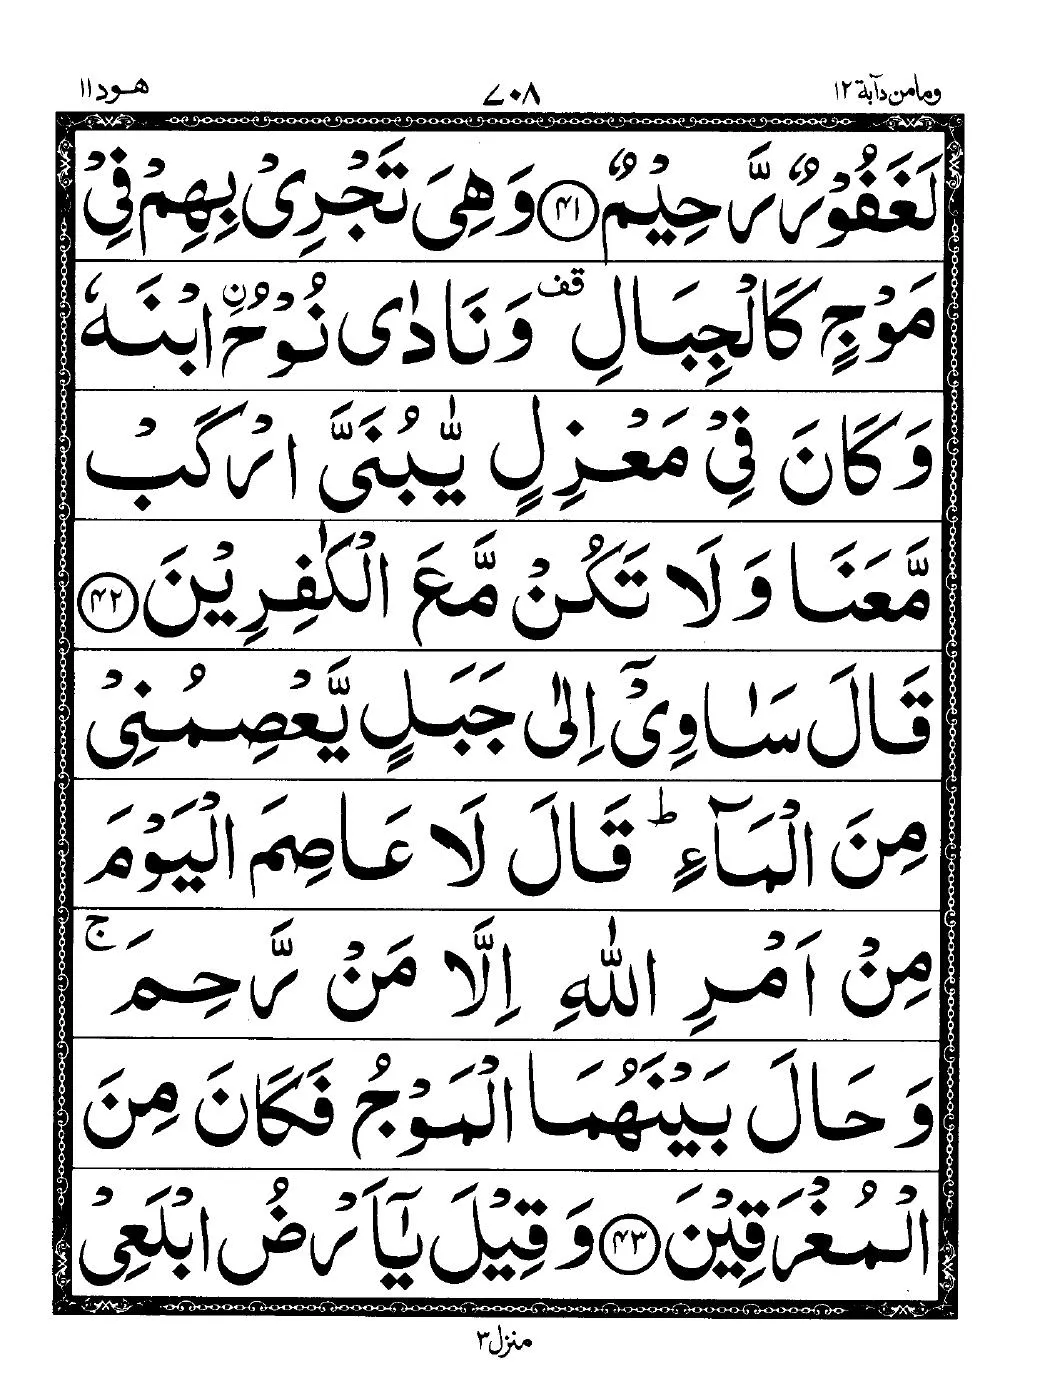 وما من دآبة ۱۲
۷۰۸
هود ۱۱
لَغَفُوْرٌ رَّحِيْمٌ ﴿۴۱﴾ وَهِىَ تَجْرِىْ بِهِمْ فِىْ
مَوْجٍ كَالْجِبَالِ ࣞقف وَنَادٰى نُوْحُ ۨابْنَهٗ
وَكَانَ فِىْ مَعْزِلٍ يّٰبُنَىَّ ارْكَبْ
مَّعَنَا وَلَا تَكُنْ مَّعَ الْكٰفِرِيْنَ ﴿۴۲﴾
قَالَ سَاٰوِىْۤ اِلٰى جَبَلٍ يَّعْصِمُنِىْ
مِنَ الْمَآءِ ؕ قَالَ لَا عَاصِمَ الْيَوْمَ
مِنْ اَمْرِ اللّٰهِ اِلَّا مَنْ رَّحِمَ ۚ
وَحَالَ بَيْنَهُمَا الْمَوْجُ فَكَانَ مِنَ
الْمُغْرَقِيْنَ ﴿۴۳﴾ وَقِيْلَ يٰۤاَرْضُ ابْلَعِىْ
منزل ۳